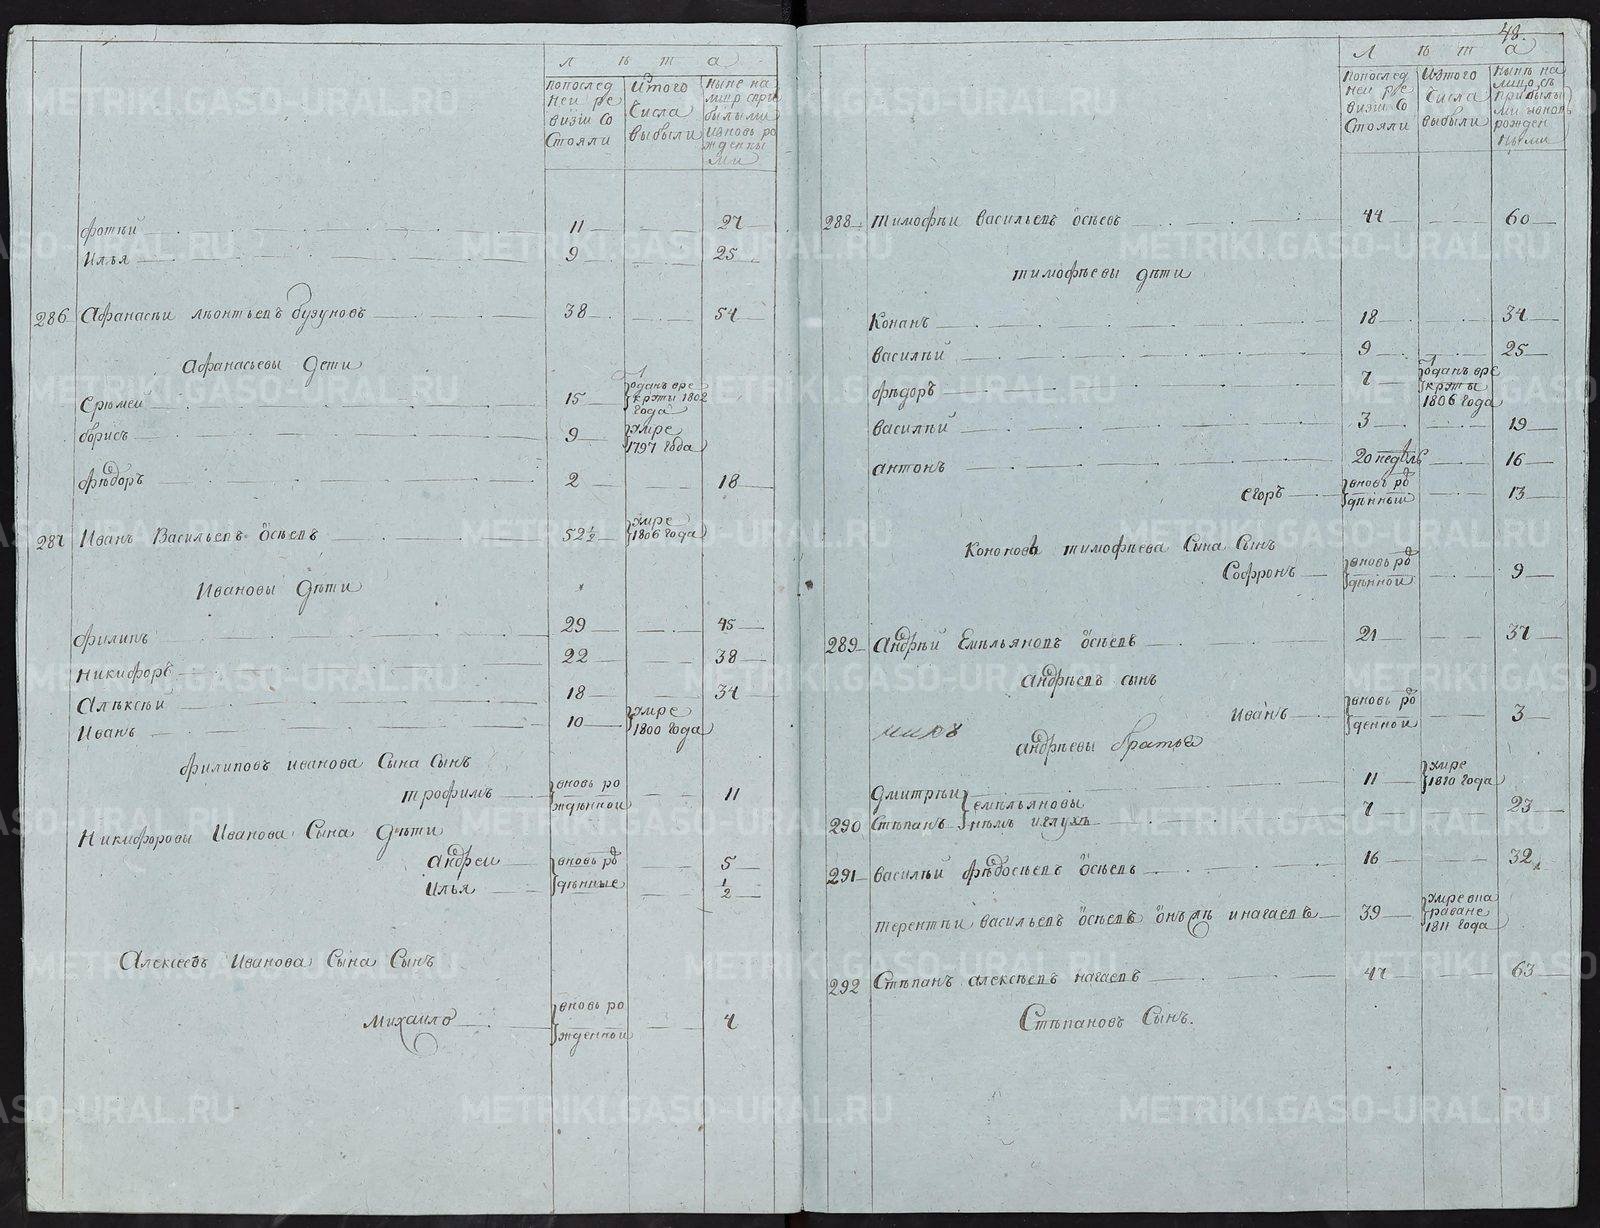 л ѣ т а
попослед
неи ре
визіи со
стояли
Изтого
Числа
выбыли
ныне на
лицо сприбылыми
ивновь ро
жденны
ми
фотѣй 11 27
Илья 9 25
286 Афанасѣи лѣонтьевъ бузуновъ 38 54
Афанасьевы дети
Ерѣмеи 15 одань вре
круты 1802
года
борисъ 9 умре
1797 года
фѣдоръ 2 18
287 Иванъ Васильевъ осѣевъ 52½ умре
1806 года
Ивановы дѣти
филипъ 29 45
никифоръ 22 38
Алѣксѣи 18 34
Иванъ 10 умре
1800 года
филиповъ иванова Сына Сынъ
трофимъ вновь ро
ждѣнной 11
Никифоровы Иванова Сына дѣти
андреи вновь ро 5
илья дѣнные ½
Алексѣевъ Иванова Сына Сынъ
михаило вновь ро
жденной 4
48.
Л ѣ т а
попослед
неи ре
визіи со
стояли
Изтого
Числа
выбыли
нынѣ на
лицо съ
прибылы
ми ивновь
рожден
ными
288 тимофѣи васильевъ осѣевъ 44 60
тимофѣевы дѣти
Конанъ 18 34
василѣй 9 25
фѣдоръ 7 одань вре
круты
1806 года
василѣй 3 19
антонъ 20 недѣль 16
егоръ вновь ро
дѣнный 13
Кононова тимофѣева Сына Сынъ
Софронъ вновь ро
дѣнной 9
289 Андрѣй Емѣльяновъ осѣевъ 21 37
андрѣевъ сынъ
иванъ вновь ро
денной 3
андрѣевы братья
дмитрѣи емѣльяновы 11 умре
1810 года
290 Стѣпанъ нѣмъ иглухъ 7 23
291 василѣй фѣдосѣевъ осѣевъ 16 32
терентѣи васильевъ осѣевъ онъ же инагаевъ 39 умре
1811 года
292 Стѣпанъ алексѣевъ нагаевъ 47 63
Стѣпановъ Сынъ.
METRIKI.GASO-URAL.RU